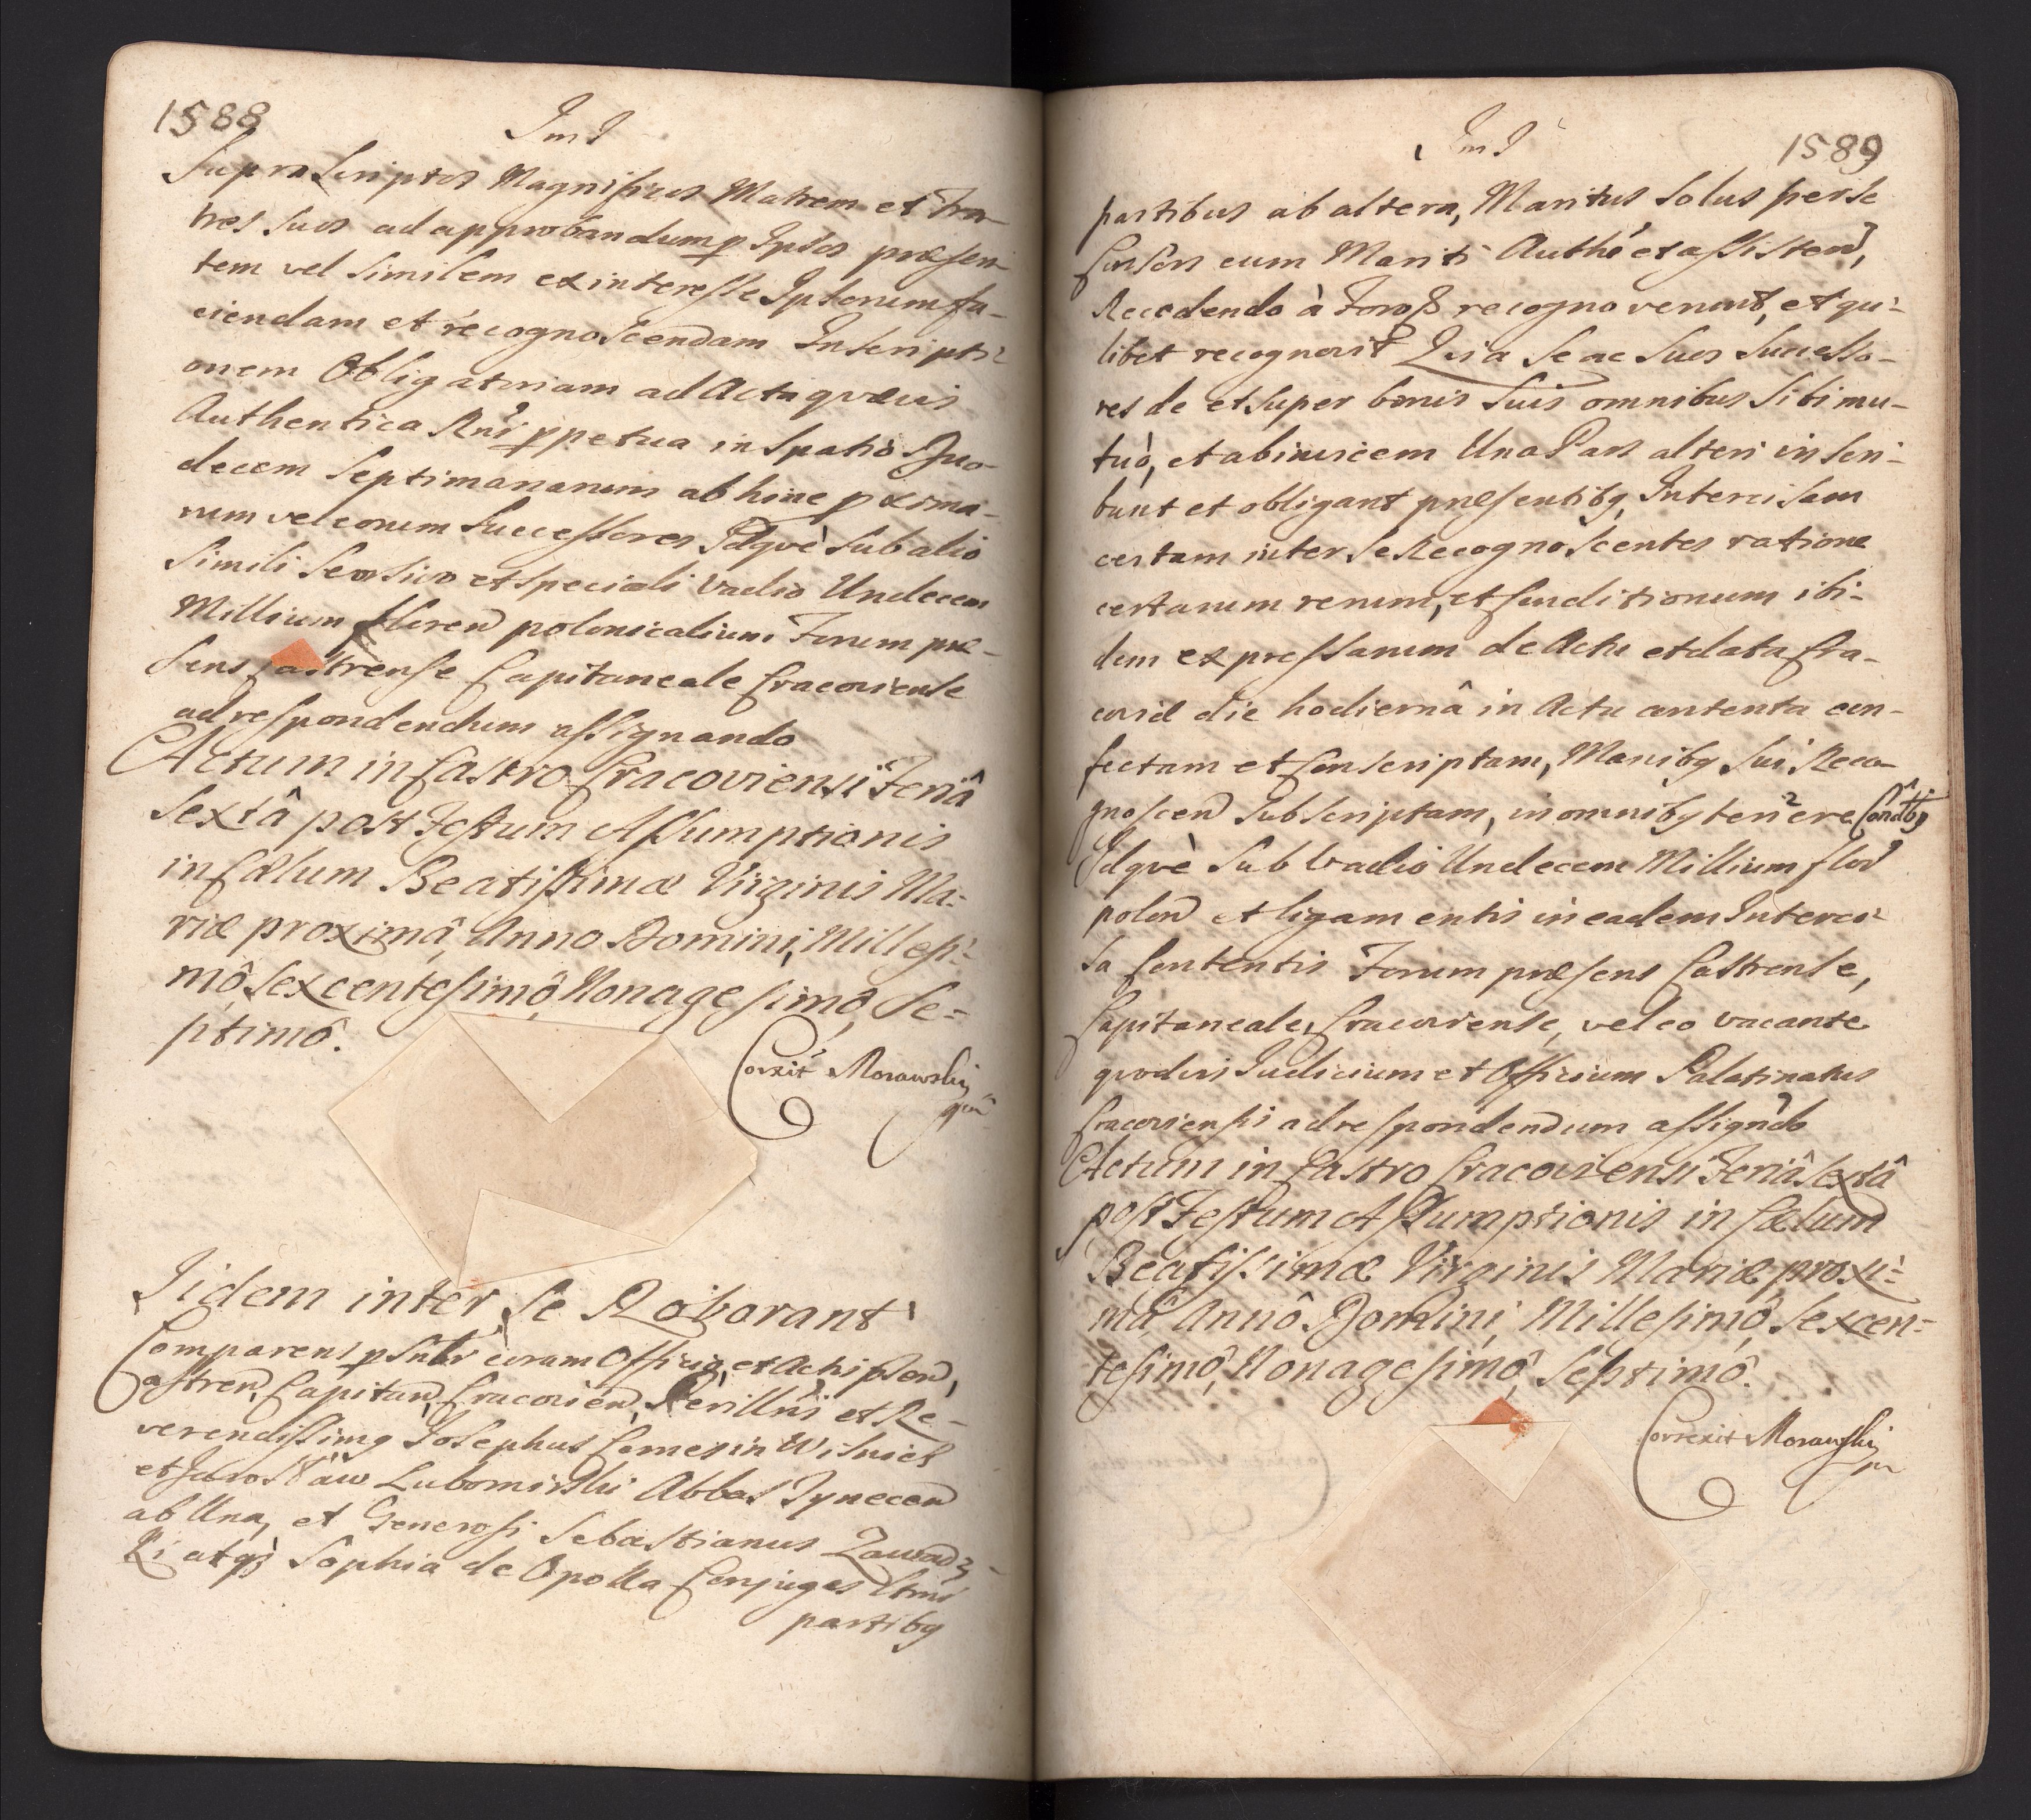 1588
Suprascriptos Magnificos Matrem et Fra-
tres suos ad approbandum p Ipsos præsen-
tem vel similem ex interesse Ipsorum fa-
ciendam et recognoscendam Inscripti-
onem Obligatoriam ad Acta quævis
Authentica Rni ppetua in spatio Duo-
decem Septimanarum ab hinc pxima-
rum vel eorum Successores Idquè sub alio
simili seorsivo et speciali vadio Undecem
Millium floren polonicalium Forum præ-
sens Castrense Capitaneale Cracoviense
ad respondendum assignando
Actum in Castro Cracoviensi Feriâ
Sextâ post Festum Assumptionis
in Cælum Beatissimæ Virginis Ma=
riæ proximâ, Anno Domini, Millesi=
mô, Sexcentesimô, Nonagesimô, Se=
ptimô.
Corxit Morawski
Iidem inter se Roborant
Comparens psnltr coram Officio, et Actis psen,
Castren, Capitan, Cracovien, Perillris et Re-
verendissimg Josephus Comes in Wisnicz
et Jarosław Lubomirski Abbas Tynecen
ab Una, et Generosi Sebastianus Zawadz-
ki atqz Sophia de Opolla Conjuges
partibg
1589
partibus ab altera, Maritus solus per se
Consors cum Mariti Authe et assisten,
Recedendo à recognoverunt, et qui=
libet recognovit Quia se ac suos Successo-
res de et super bonis suis omnibus sibi mu-
tuò, et ab invicem Una Pars alteri inscri-
bunt et obligant præsentibg, Intercisam
certam inter se Recognoscentes ratione
certarum rerum, et Conditionum ibi-
dem expressarum de Actu et data Cra-
coviæ die hodiernâ in Actu contenta con-
fectam et Conscriptam, Manibg Sui Reco-
gnoscen subscriptam, in omnibg tenere Condbg
Idquè sub Vadio Undecem Millium flor
polon et ligamentis in eadem Interci-
sa Contentis Forum præsens Castrense,
Capitaneale, Cracoviense, vel eo vacante
quodvis Judicium et Officium Palatinatus
Cracoviensis ad respondendum assigndo
Actum in Castro Cracoviensi Feriâ Sextâ
post Festum Assumptionis in Cælum
Beatissimæ Virginis Mariæ proxi=
mâ Annô Domini, Millesimô, Sexcen=
tesimô, Nonagesimô, Septimô.
Correxit Morawski